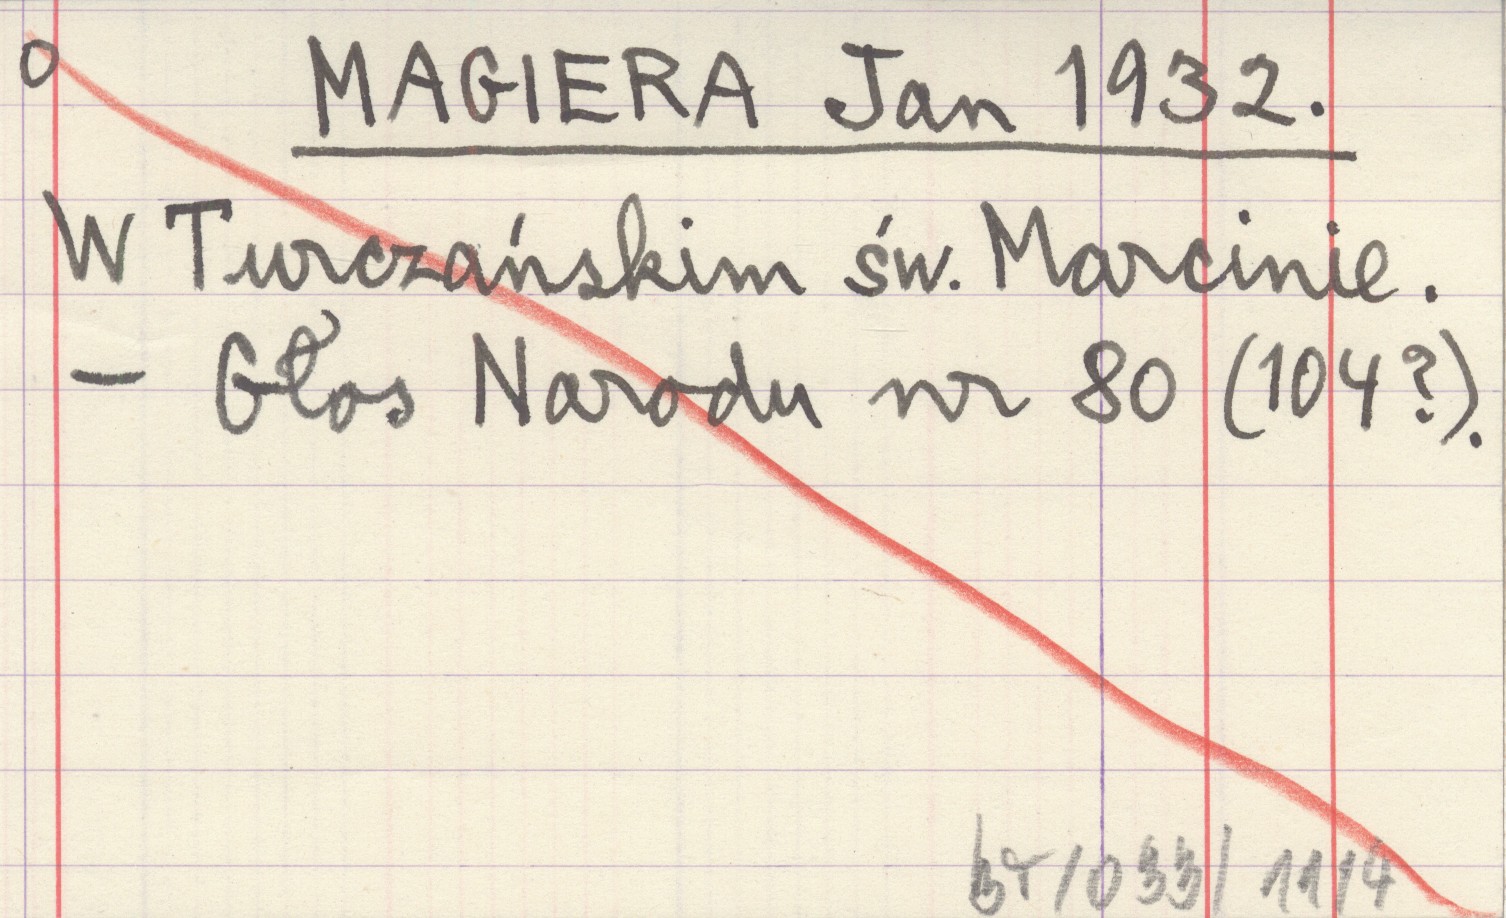 O MAGIERA Jan 1932.
W Turczańskim św. Marcinie.
— Głos Narodu nr 80 (104?).
br/033/1114